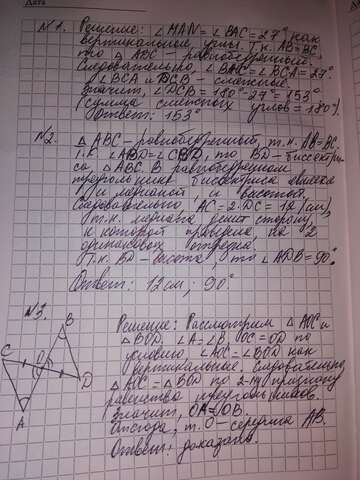 Дата
№1. Решение: ∠MAN = ∠BAC = 27° как
вертикальные углы. Т.к. AB = BC,
то △ABC – равнобедренный.
Следовательно, ∠BAC = ∠BCA = 27°
∠BCA и DCB – смежные.
Значит, ∠DCB = 180° - 27° = 153°
(сумма смежных углов = 180°).
Ответ: 153°
№2. △ABC – равнобедренный, т.к. AB = BC.
Т.к. ∠ABD = ∠CBD, то BD – биссектри-
са △ABC. В равнобедренном
треугольнике биссектриса явля
и медианой, и высотой.
Следовательно AC = 2·DC = 12 (см),
т.к. медиана делит сторону,
к которой проведена, на 2
одинаковых отрезка.
Т.к. BD – высота, то ∠ADB = 90°.
Ответ: 12 см; 90°
№3.
B
C
O
D
A
Решение: Рассмотрим △AOC и
△BOD. ∠A = ∠B, OC = OD по
условию, ∠AOC = ∠BOD как
вертикальные. Следовательно,
△AOC = △BOD по 2-му признаку
равенства треугольников.
Значит, OA = OB.
Отсюда, т. O – середина AB.
Ответ: доказано.